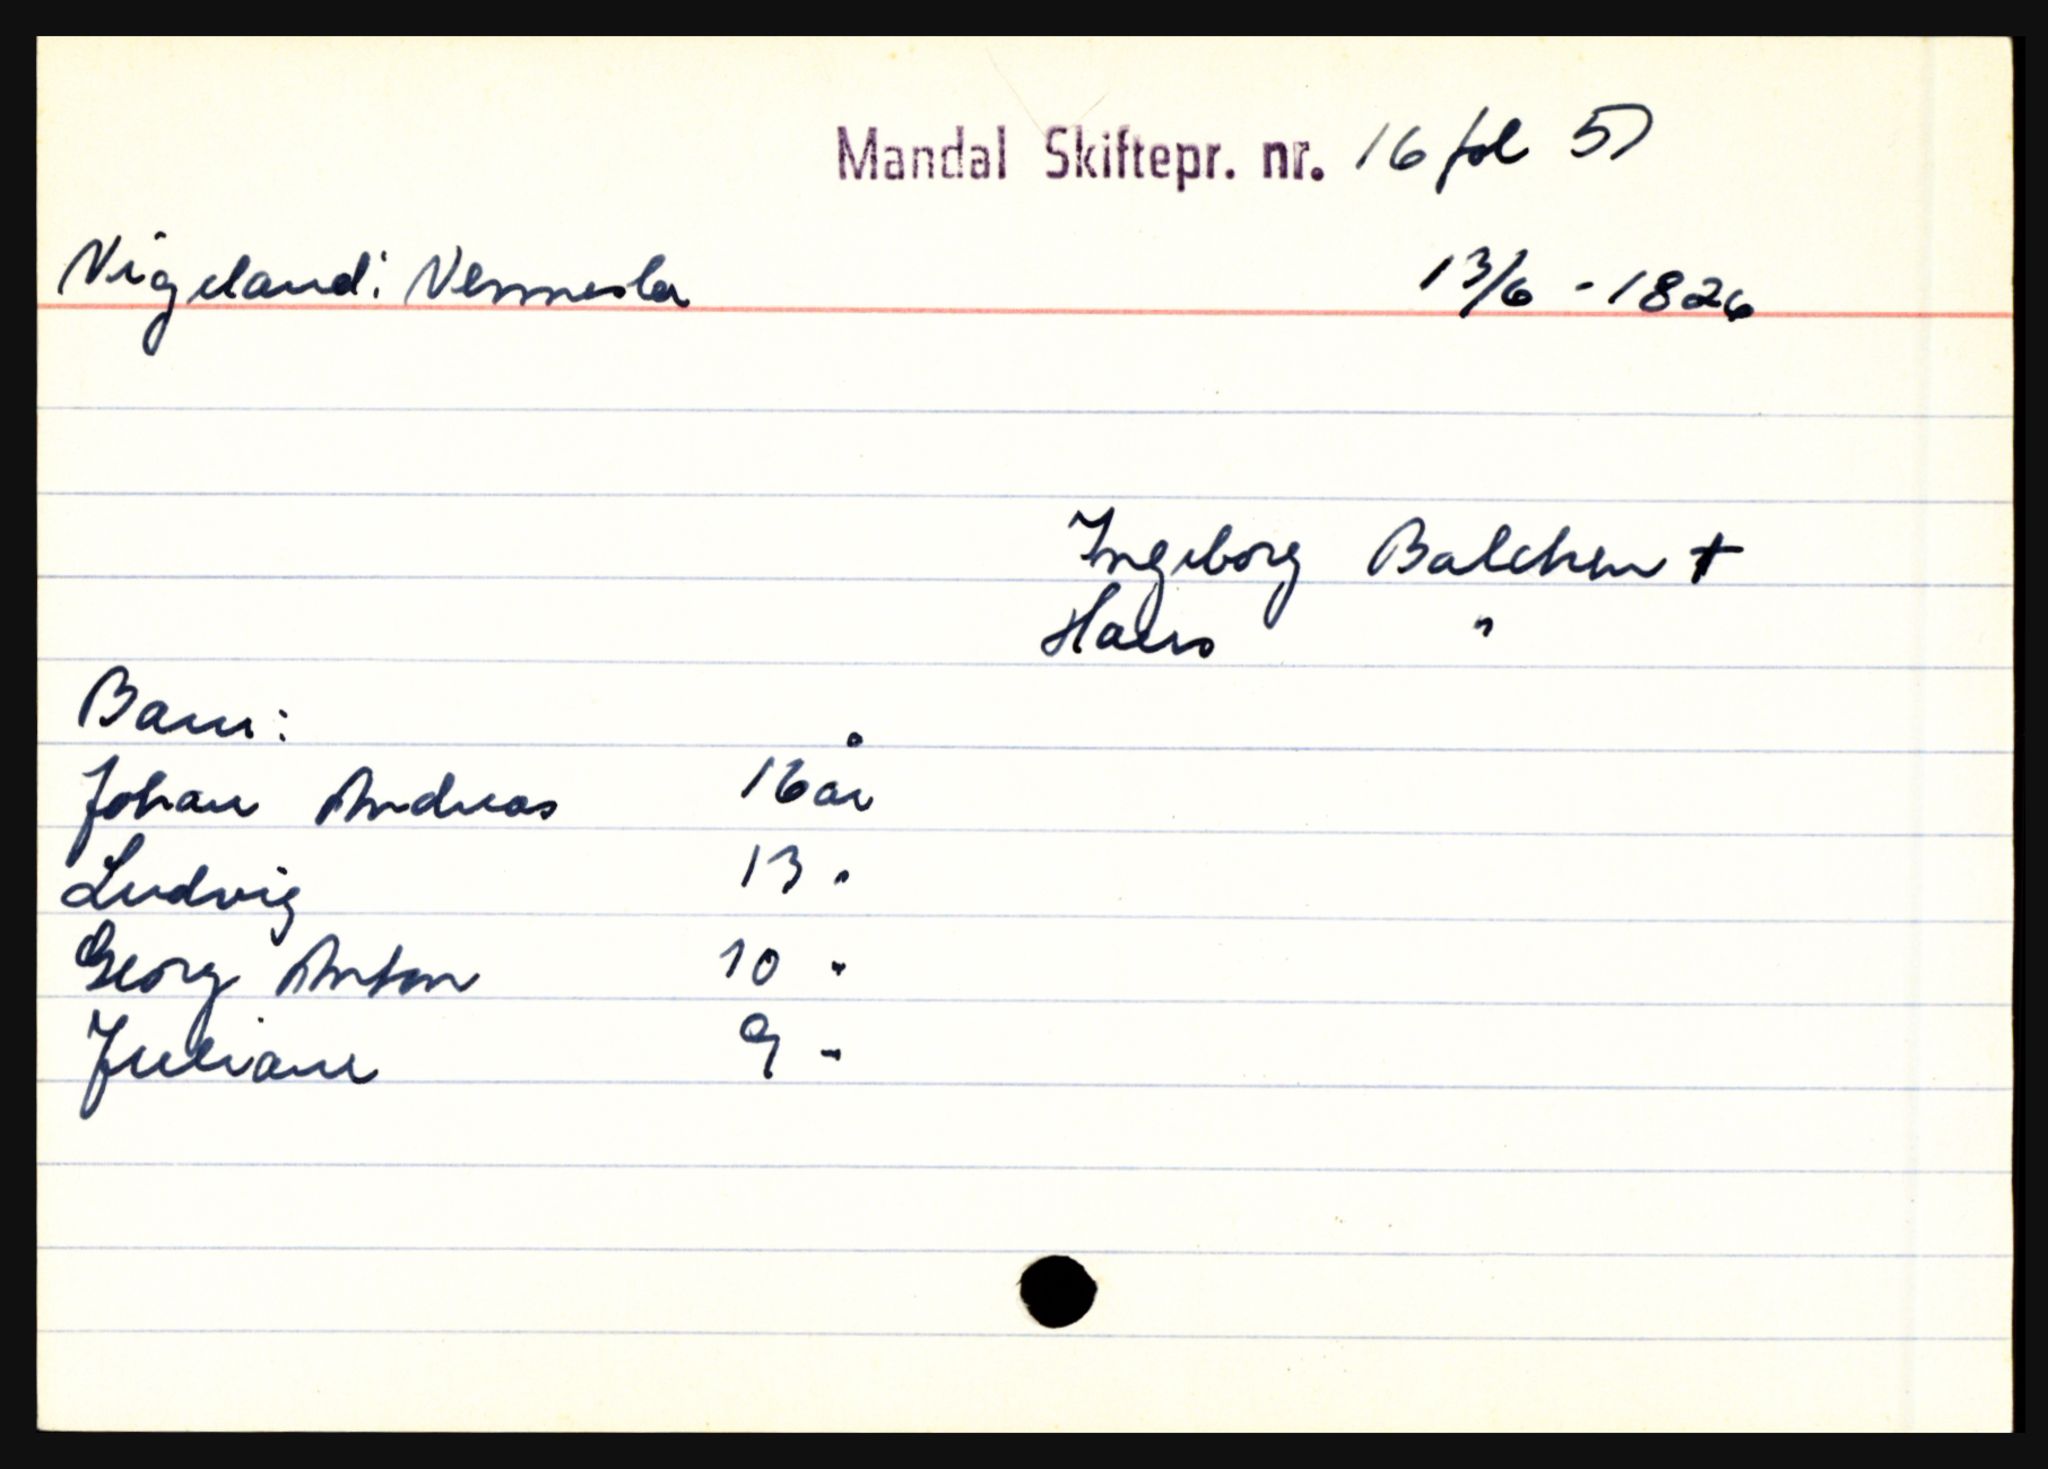 Mandal Skiftepr. nr. 16 fol 57
Vigeland i Vennesla 13/6 - 1826
Ingeborg Balchen †
Hans "
Barn:
Johan Andreas 16 år
Ludvig 13 "
Georg Anton 10 "
Juliane 9 "